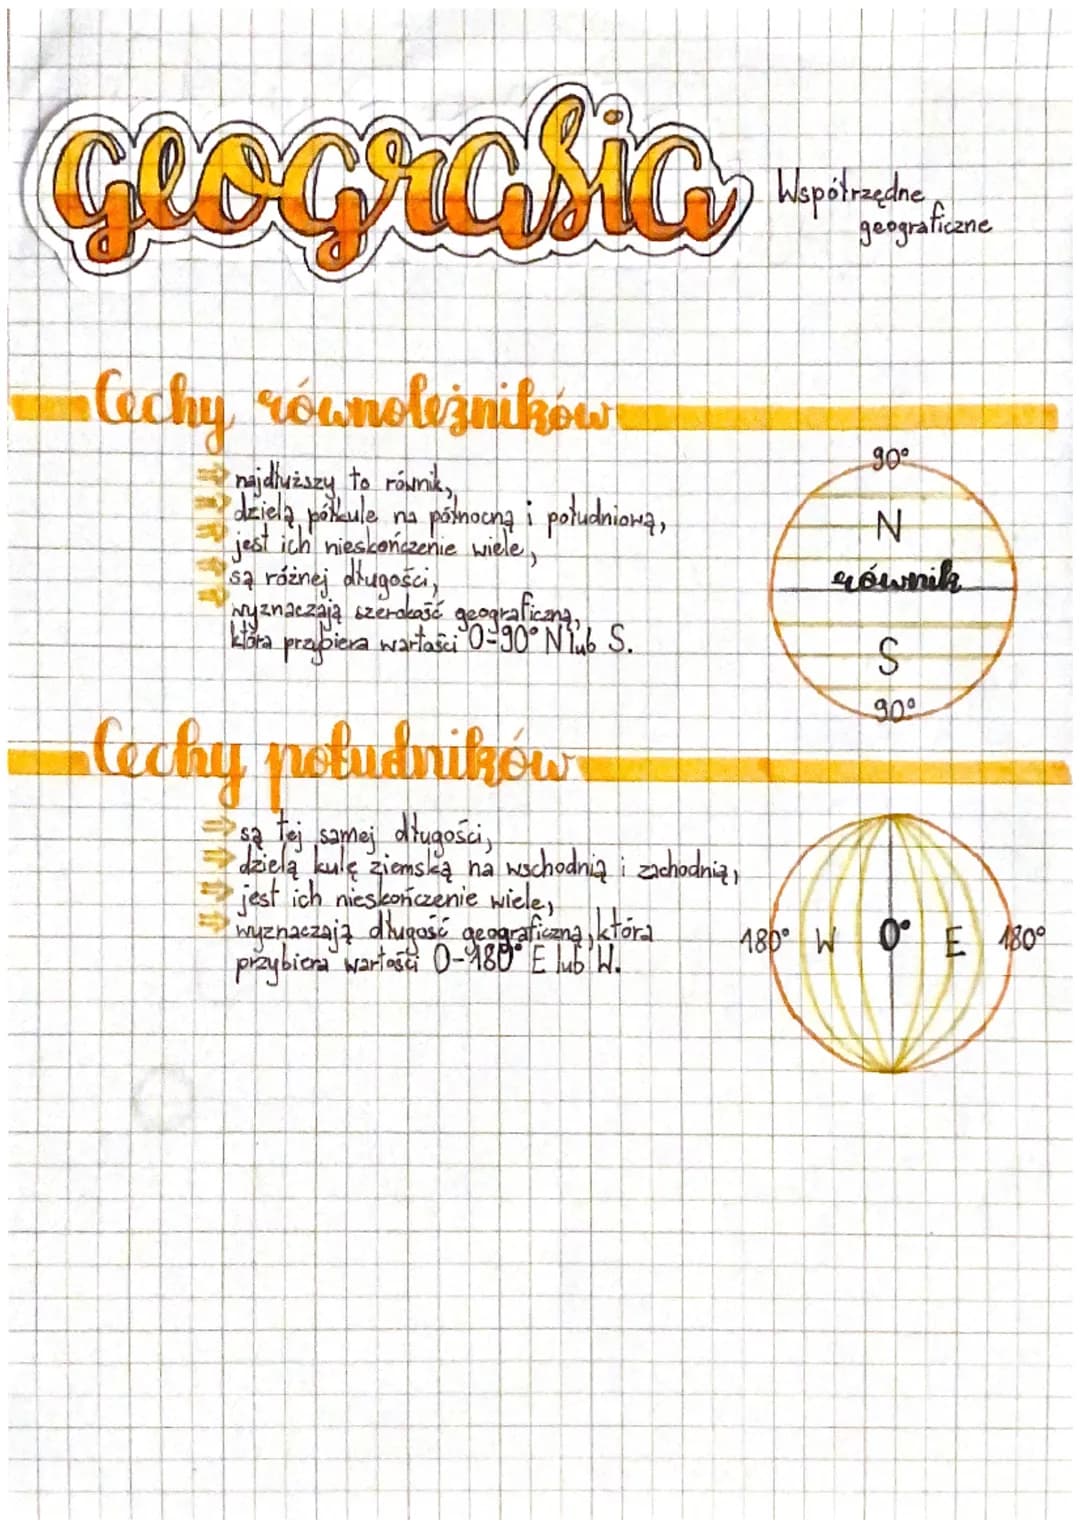 geografia
Współrzędne
geograficzne
Cechy równoleżników
najdłuższy to równik,
dzielą półkule na północną i południową,
jest ich nieskończenie wiele,
są różnej długości,
wyznaczają szerokość geograficzną,
która przybiera wartości 0-90° N lub S.
90°
N
równik
S
90°
Cechy południków
są tej samej długości,
dzielą kulę ziemską na wschodnią i zachodnią,
jest ich nieskończenie wiele,
wyznaczają długość geograficzną, która
przybiera wartości 0-180° E lub W.
180° W 0° E 180°